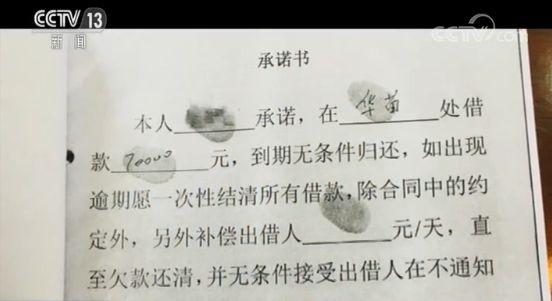 CCTV 13
新闻
CCTV
承诺书
本人 承诺，在 华苗 处借
款 70000 元，到期无条件归还，如出现
逾期愿一次性结清所有借款，除合同中的约
定外，另外补偿出借人 元/天，直
至欠款还清，并无条件接受出借人在不通知